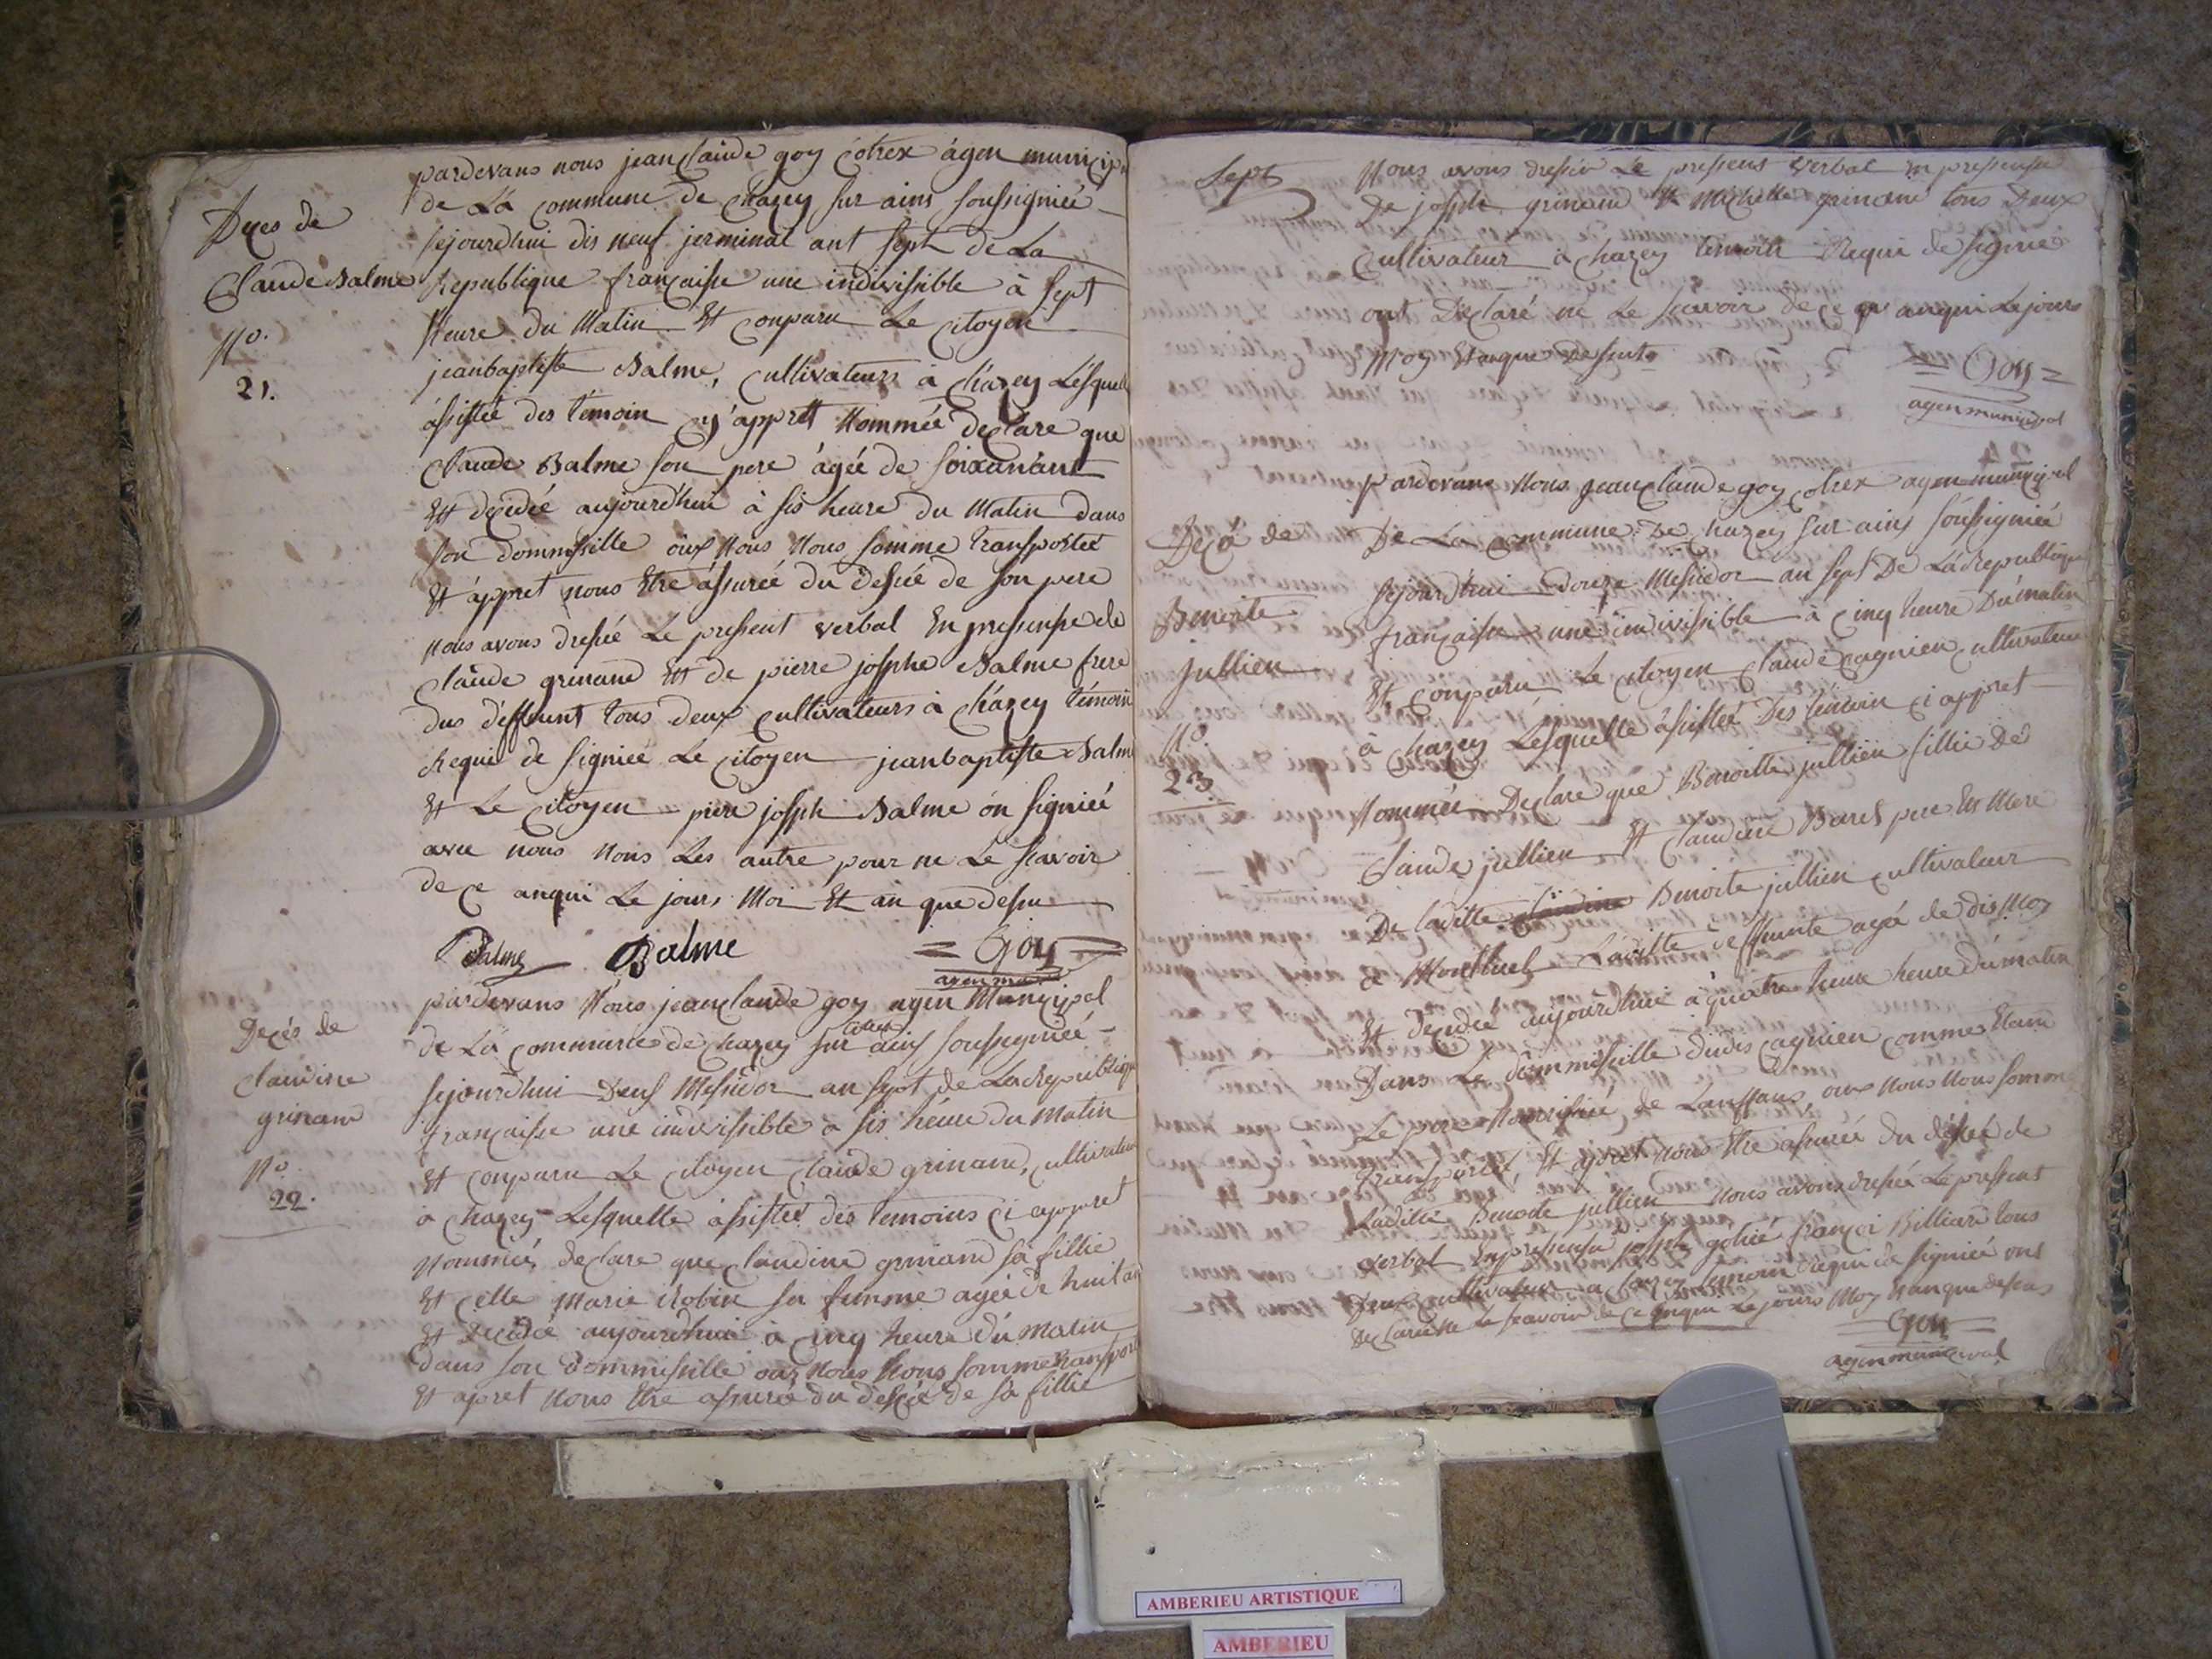 Deces de
Claude Balme
No.
21.
pardevans nous jean Claude goy cotrex àgen municipal
de La commune de chazey sur ains soussigniée
sejourdhui dis neuf jerminal ant sept de La
Republique française une indivissible à sept
heure du Matin Et conparu Le citoyen
jeanbaptiste Balme, cultivateurs à chazey Lesquell
assistée des témoin cy apprett Nommée declare que
Claude Balme son pere âgée de soixantant
Est décidée aujourd'hui à sis heure du Matin dans
son dommissille oux Nous Nous somme transportée
Et àppret nous Etre àssurée du desée de son pere
Nous avons dressée Le pressent verbal En pressensse de
claude grinand Et de pierre josphe Balme frere
dus deffeunt tous deux cultivateurs à chazey témoin
Requi de signiée Le citoyen jeanbaptiste Balme
Et Le citoyen piere josph Balme on signiée
avec nous Nons Les autre pour ne Le scavoir
de ce anqui Le jours Moi Et an que desu
Balme Balme = Goy =
agen mu
Decés de
claudine
grinand
No.
22.
pardevans Nous jean claude goy agen Municipal
de La commune de chazey sur ains soussigniée
sejourdhui Deus Messidor an sept de La Republique
française une indivissible a sis heure du Matin
Et conparu Le citoyen claude grinand, cultivateur
à chazey Lesquelle assistée des temoins ci appret
Nommée, declare que claudine grinand sa fillie
Et celle Marie Robin sa femme agée de huit an
Et Decidée aujourdhui à cinq heure du Matin
Dans son Dommissille oux Nous Nous somme transport
Et apret Nous Etre assurée du desée de sa fillie
Sept
Nous avons dressée Le pressent verbal En pressensse
De josph grinand Et Michelle grinand tous Deux
Cultivateur à chazey temoin Requi de signiée
ont Declaré ne Le scavoir de ce anqui Le jours
Moy Et anque dessuts
= Goy =
agen municipal
Decé de
Benoite
jullien
No.
23
pardevans Nous jean claude goy cotrex agen municipal
De La commune De chazey sur ains soussigniée
sejourd'hui douze Messidor an sept De La Republique
française une indivissible à cinq heure Du matin
Et conparu Le citoyen claude cagnien cultivateur
à chazey Lesquelle àssistée Des témoin ci appret
Nommée Declare que Benoitte jullien fillie De
Claude jullien Et claudine Baret pere Et Mere
De laditte claudine Benoite jullien cultivateur
a Montluel Laditte deffeunte agé de dis Moy
Et Decidée aujourd'hui à quatre heure heure du matin
Dans Le dommissille dudis cagnien comme Etant
Le pere Nourissiée de Lanffans, oux Nous Nous somme
Transportée, Et apret nous Etre assurée du desée de
Laditte Benoite jullien Nous avons dressée Le pressent
verbal En pressensse josph françoi Billiard tous
Deux cultivateur à chazey temoin Requi de signiée ont
Declaré ne Le scavoir de ce anqui Le jours Moy Et anque dessus
Goy
agen municipal
AMBERIEU ARTISTIQUE
AMBERIEU